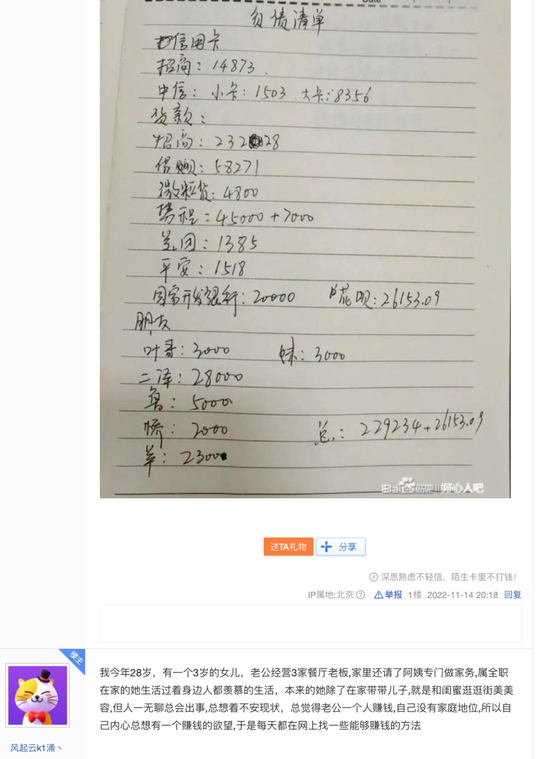 负债清单
信用卡
招商：14873
中信：小卡：1503 大卡：8356
贷款：
招商：23228
借呗：58271
微粒贷：4800
携程：45000+7000
美团：1385
平安：1518
国家开发银行：20000 花呗：26153.09
朋友
叶哥：3000 妹：3000
二泽：28000
鲁：5000
桥：2000 总：229234+26153.09
羊：2300
送TA礼物
分享
深思熟虑不轻信，陌生卡里不打钱！
IP属地:北京 举报 1楼 2022-11-14 20:18 回复
楼主
风起云k1涌丶
我今年28岁，有一个3岁的女儿，老公经营3家餐厅老板,家里还请了阿姨专门做家务,属全职
在家的她生活过着身边人都羡慕的生活，本来的她除了在家带带儿子,就是和闺蜜逛逛街美美
容,但人一无聊总会出事,总想着不安现状，总觉得老公一个人赚钱,自己没有家庭地位,所以自
己内心总想有一个赚钱的欲望,于是每天都在网上找一些能够赚钱的方法